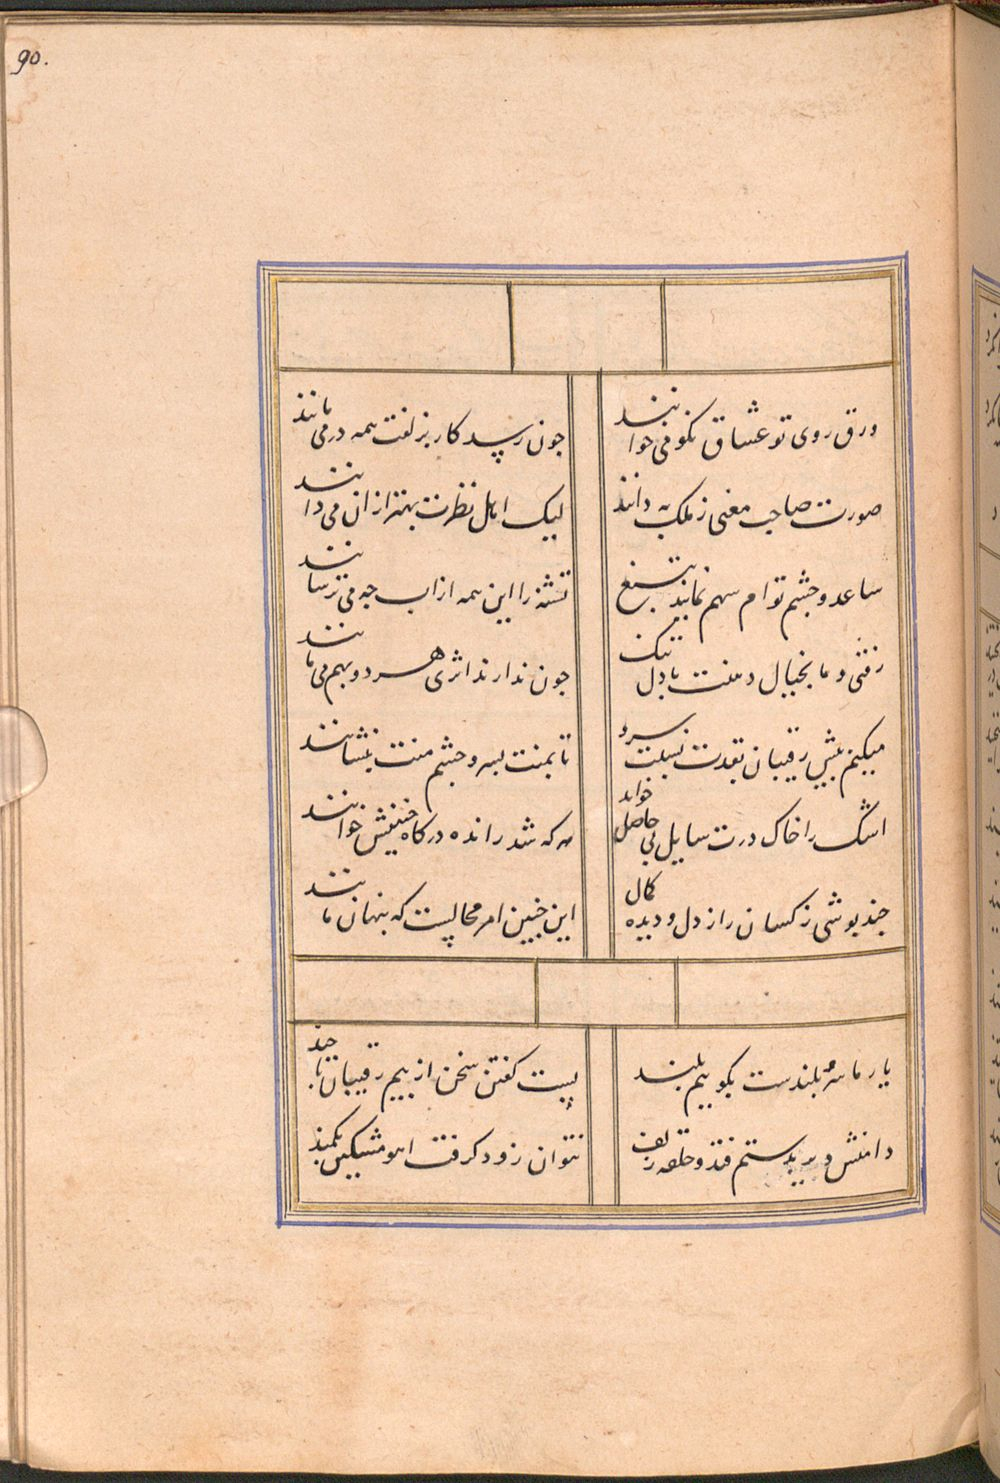 90.
ورق روی تو عشاق نکو می خوانند
جون رسد کار بزلفت همه در می مانند
صورت صاحب معنی ز ملک به دانند
لیک اهل نظرت بهتر ازان می دانند
ساعد و جشم توام سهم نمایند بتیغ
تشنه را این همه از اب جه می ترسانند
رفتی و ما بخیال دهنت با دل تنک
جون ندارند اثری هر دو بهم می مانند
میکنم بیش رقیبان بقدت نسبت سرو
تا بمنت بسر و جشم منت بنشانند
اشک را خاک درت سایل بی حاصل خواند
هر که شد رانده درگاه جنینش خوانند
جند بوشی ز کسان راز دل و دیده کمال
این جنین امر محالیست که بنهان مانند
یار ما سرو بلندست بکوییم بلند
بست کفتن سخن از بیم رقیبان تا جند
دامنش دیر بدستم فتد و حلقه زلف
نتوان زود کرفت اهو مشکین بکمند